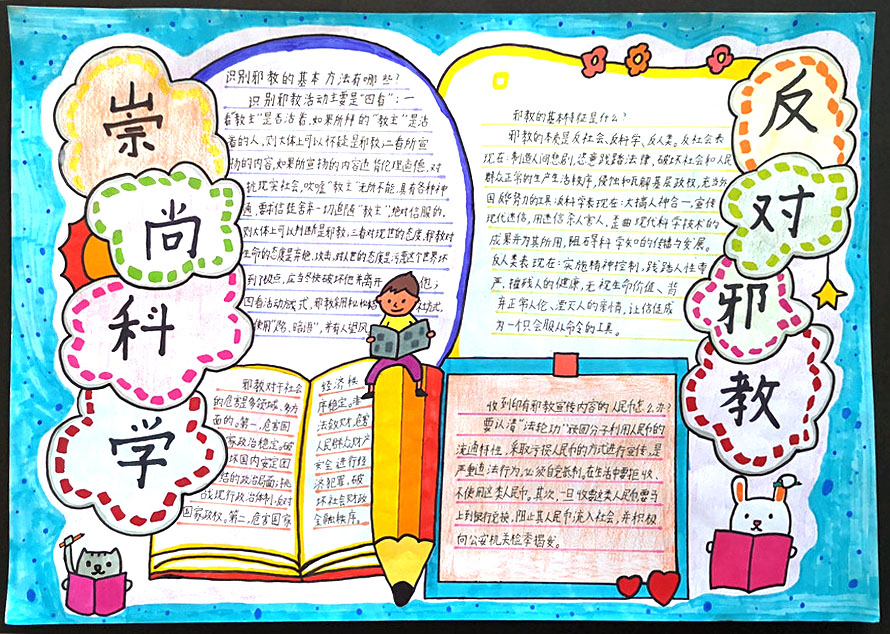 崇
尚
科
学
反
对
邪
教
识别邪教的基本方法有哪些?
识别邪教活动主要是“四看”:一
看“教主”是否活着,如果所拜的“教主”是活
着的人,则大体上可以怀疑是邪教;二看所宣
扬的内容,如果所宣扬的内容违背伦理道德,对
抗现实社会,吹嘘“教主”无所不能,具有各种神
通,要求信徒舍弃一切追随“教主”,绝对信服的,
则大体上可以判断是邪教;三看对现世的态度,邪教对
生命的态度是弃绝、攻击,对人世的态度是污蔑这个世界坏
到了极点,应当尽快破坏他来离开他;
四看活动模式,邪教采用秘密结社方式,
使用“隐、暗语”,并有人望风
邪教的基本特征是什么?
邪教的本质是反社会、反科学、反人类。反社会表
现在:制造人间悲剧,恣意践踏法律,破坏社会和人民
群众正常的生产生活秩序,侵蚀和瓦解基层政权,充当外
国敌势力的工具;反科学表现在:大搞人神合一,宣传
现代迷信,用迷信杀人害人,歪曲现代科学技术的
成果并为其所用,阻碍科学知识的传播与发展。
反人类表现在:实施精神控制,践踏人性尊
严,摧残人的健康,无视生命价值、背
弃正常人伦、湮灭人的亲情,让信徒成
为一个只会服从命令的工具。
邪教对于社会
的危害是多领域、多方
面的。第一,危害国
家政治稳定。破
坏国内安定团
结的政治局面;挑
战现行政治体制,反对
国家政权。第二,危害国家
经济秩
序稳定。非
法敛财,危害
人民群众财产
安全进行经
济犯罪,破
坏社会财政
金融秩序。
收到印有邪教宣传内容的人民币怎么办?
要认清“法轮功”顽固分子利用人民币的
流通特性,采取污损人民币的方式进行宣传,是
严重违法行为,必须自觉抵制。在生活中要拒收、
不使用这类人民币。其次,一旦收到这类人民币要马
上到银行兑换,阻止其人民币流入社会,并积极
向公安机关检举揭发。